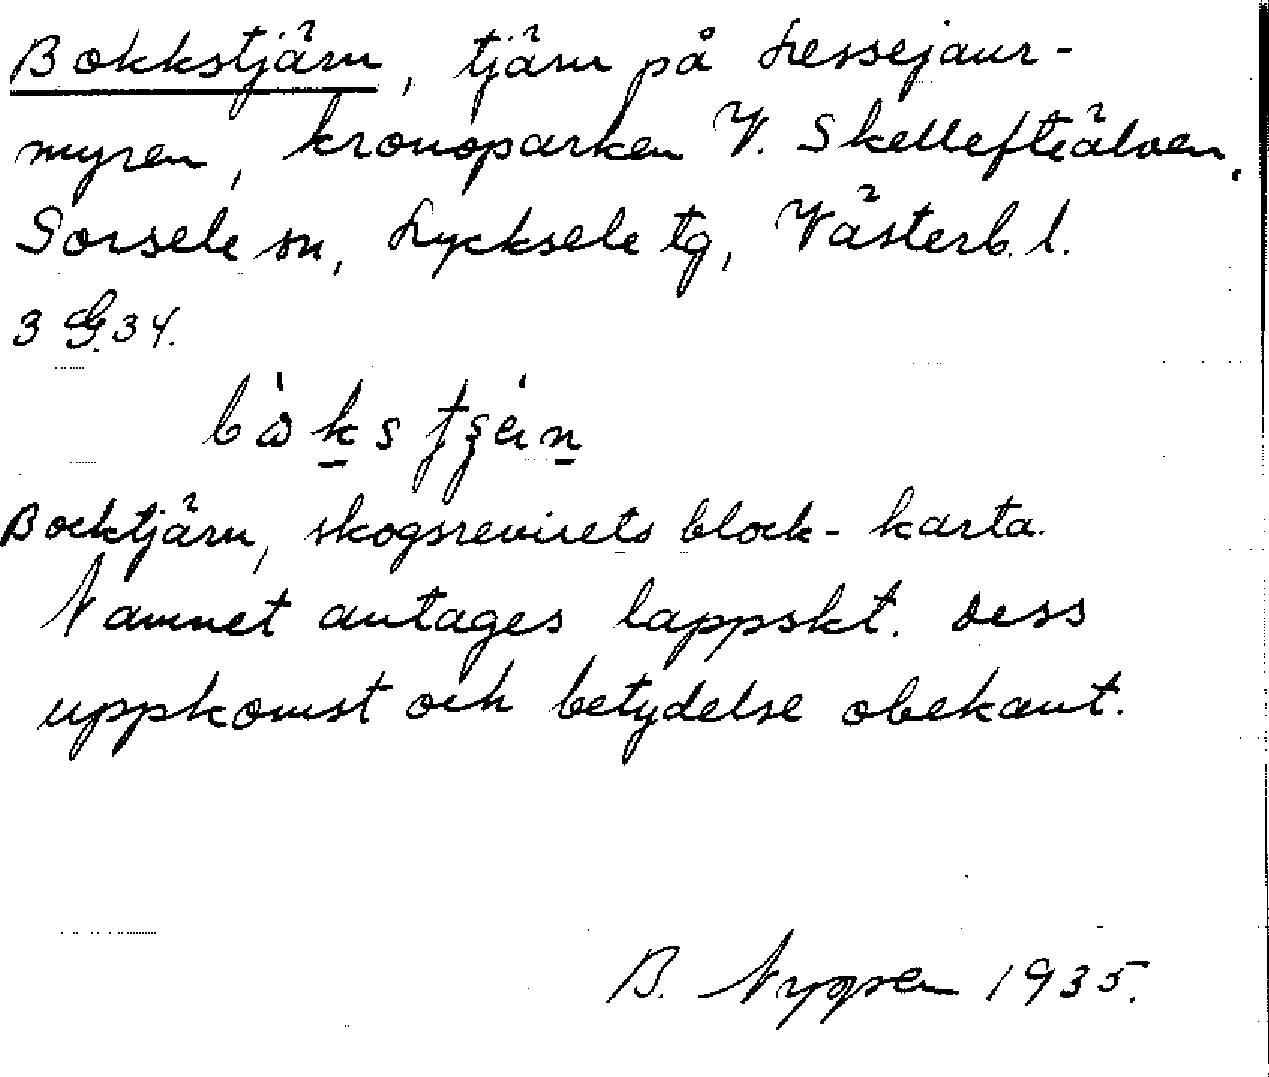 Bokkstjärn, tjärn på Lessejaur-
myren, kronoparken V. Skellefteälven,
Sorsele sn, Lycksele tg, Västerb. l.
3 G. 34.
Bocktjärn, skogsrevirets block-karta.
Namnet antages lappskt. Dess
uppkomst och betydelse obekant.
B. Nygren 1935.